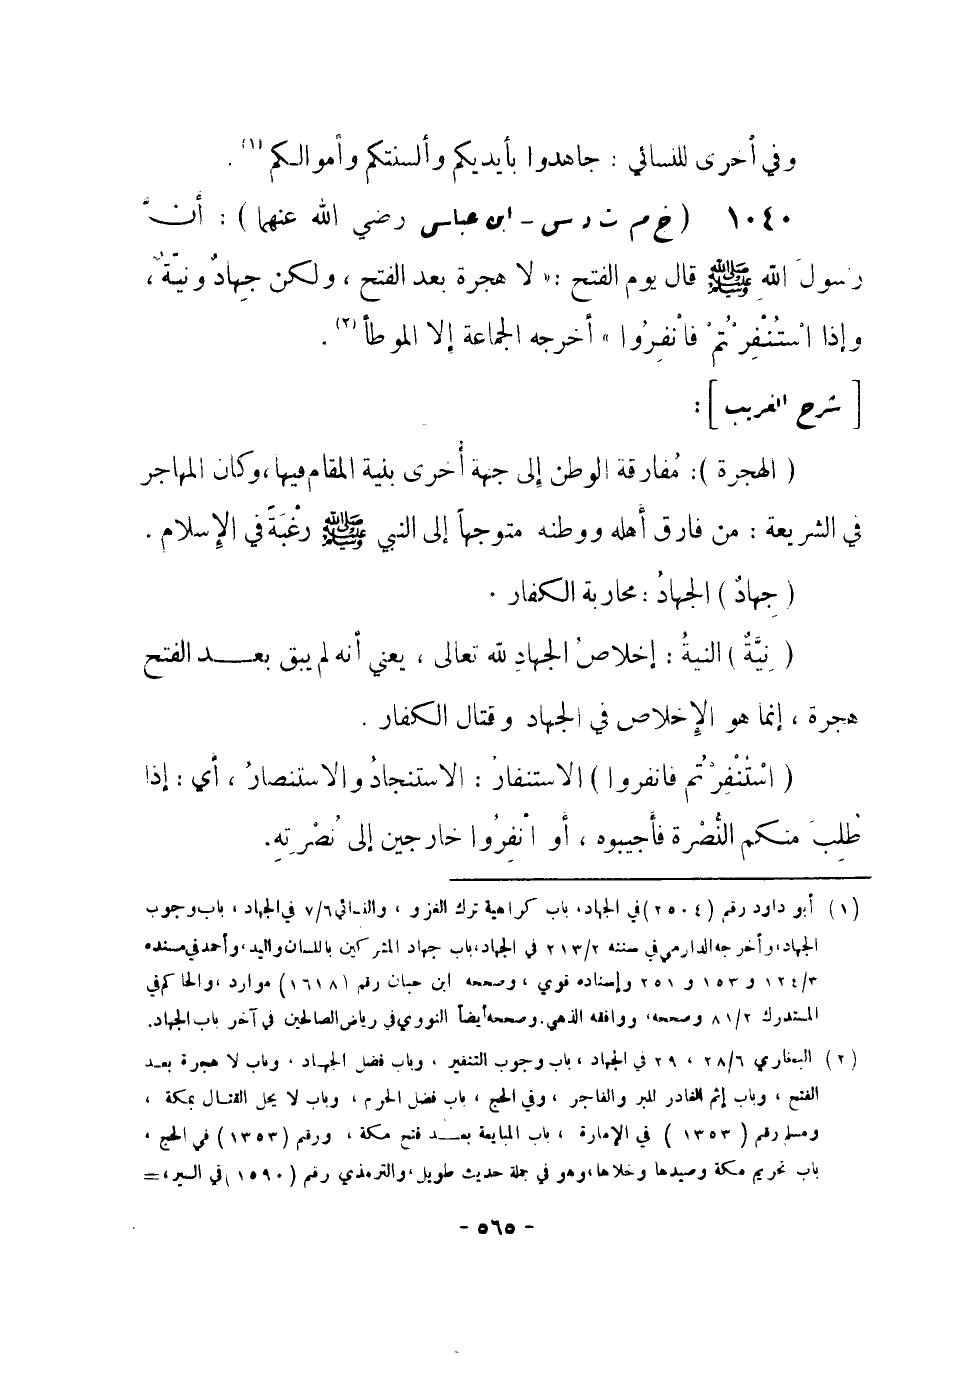 وفي أخرى للنسائي : جاهدوا بأيديكم وألسنتكم وأموالكم (١) .
١٠٤٠ ( خ م ت د س - ابن عباس رضي الله عنهما ) : أنَّ
رسولَ اللهِ ﷺ قال يوم الفتح : « لا هجرة بعد الفتح ، ولكن جِهادٌ ونيّةٌ ،
وإذا اسْتُنْفِرْتُمْ فانْفِرُوا » أخرجه الجماعة إلا الموطأ (٢) .
[ شرح الغريب ] :
( الهجرة ) : مُفارقة الوطن إلى جهة أُخرى بنية المقام فيها ، وكان المهاجر
في الشريعة : من فارق أهله ووطنه متوجهاً إلى النبي ﷺ رغْبَةً في الإسلام .
( جِهادٌ ) الجهادُ : محاربة الكفار .
( نِيَّةٌ ) النيةُ : إخلاصُ الجهادِ لله تعالى ، يعني أنه لم يبق بعد الفتح
هجرة ، إنما هو الإخلاص في الجهاد وقتال الكفار .
( اسْتُنْفِرْتُم فانفروا ) الاستنفارُ : الاستنجادُ والاستنصارُ ، أي : إذا
طُلِبَ منكم النُّصْرة فأجيبوه ، أو انْفِرُوا خارجين إلى نُصْرتِهِ .
(١) أبو داود رقم (٢٥٠٤) في الجهاد، باب كراهية ترك الغزو ، والنسائي ٧/٦ في الجهاد ، باب وجوب
الجهاد، وأخرجه الدارمي في سننه ٢١٣/٢ في الجهاد، باب جهاد المشركين باللسان واليد، وأحمد في مسنده
١٢٤/٣ و ١٥٣ و ٢٥١ وإسناده قوي ، وصححه ابن حبان رقم (١٦١٨) موارد ، والحاكم في
المستدرك ٨١/٢ وصححه، ووافقه الذهبي. وصححه أيضاً النووي في رياض الصالحين في آخر باب الجهاد.
(٢) البخاري ٢٨/٦ ، ٢٩ في الجهاد ، باب وجوب النفير ، وباب فضل الجهاد . وباب لا هجرة بعد
الفتح ، وباب إثم الغادر للبر والفاجر ، وفي الحج ، باب فضل الحرم ، وباب لا يحل القتال بمكة ،
ومسلم رقم ( ١٣٥٣ ) في الإمارة ، باب المبايعة بعد فتح مكة ، ورقم (١٣٥٣) في الحج ،
باب تحريم مكة وصيدها وخلاها، وهو في جملة حديث طويل، والترمذي رقم (١٥٩٠) في السير، =
- ٥٦٥ -